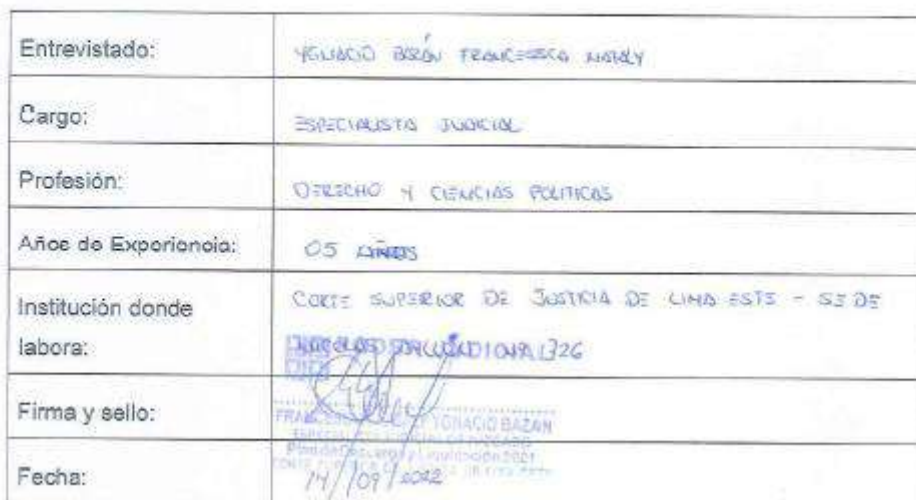 Entrevistado: YGNACIO BAZÁN FRANCESSCA NATALY
Cargo: ESPECIALISTA JUDICIAL
Profesión: DERECHO Y CIENCIAS POLITICAS
Años de Experiencia: 05 AÑOS
Institución donde labora: CORTE SUPERIOR DE JUSTICIA DE LIMA ESTE - SEDE
1326
Firma y sello:
YGNACIO BAZAN
Fecha: 14/09/2022